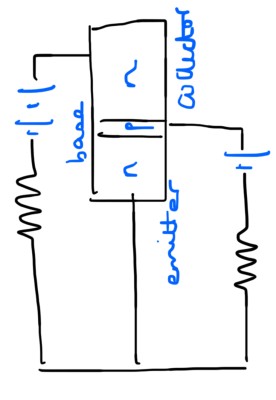 base
n p n
emitter
collector